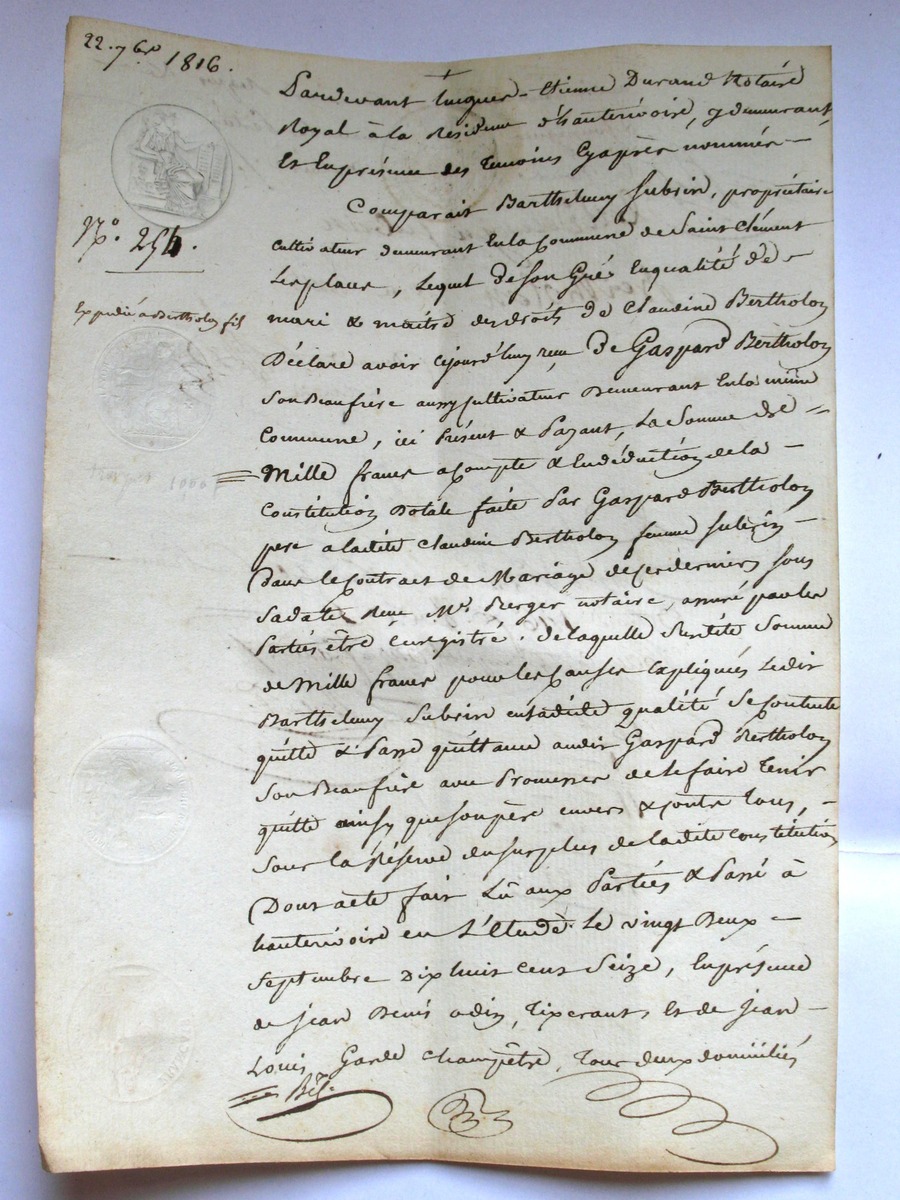 22. 7bre 1816.
Pardevant Jacques-Etienne Durand Notaire
Royal à la Résidence d'hauterivoire, y demeurant
Et En présence des Temoins Cy après nommés —
Comparait Barthelemy Subrin, propriétaire
N.° 254.
cultivateur demeurant En la Commune de Saint Clément
Les places, Lequel de son Gré En qualité de —
Expédié a Bertholon fils
mari & maître des droits de Claudine Bertholon
Déclare avoir cejourd'huy reçu de Gaspard Bertholon
Son Beaufrère aussy Cultivateur Demeurant En la même
Commune, ici Présent & Payant, La Somme de =
1000 f
Mille francs acompte & En déduction de la —
Constitution Dotale faite Par Gaspard Bertholon
pere a ladite Claudine Bertholon femme Subrin —
Dans le Contract de Mariage de ces derniers sous
Sa date Reçu Me. Berger notaire, assuré par les
Parties être Enregistré. de laquelle Susdite Somme
de Mille francs pour les Causes Expliquées Ledit
Barthelemy Subrin en sadide qualité Se Contente
quitte & Passe quittance audit Gaspard Bertholon
Son Beaufrère avec Promesses de le faire Tenir
quitte ainsy que son père envers & contre Tous, —
Sous la Réserve du surplus de ladite Constitution
Dont acte fait Lû aux Parties & Passé à
hauterivoire en L'Etude. Le vingt Deux —
Septembre Dix huit cent Seize, En présence
de Jean Denis odin, Tixerant, Et de Jean —
Louis Garde Champêtre, Tous deux domiciliés